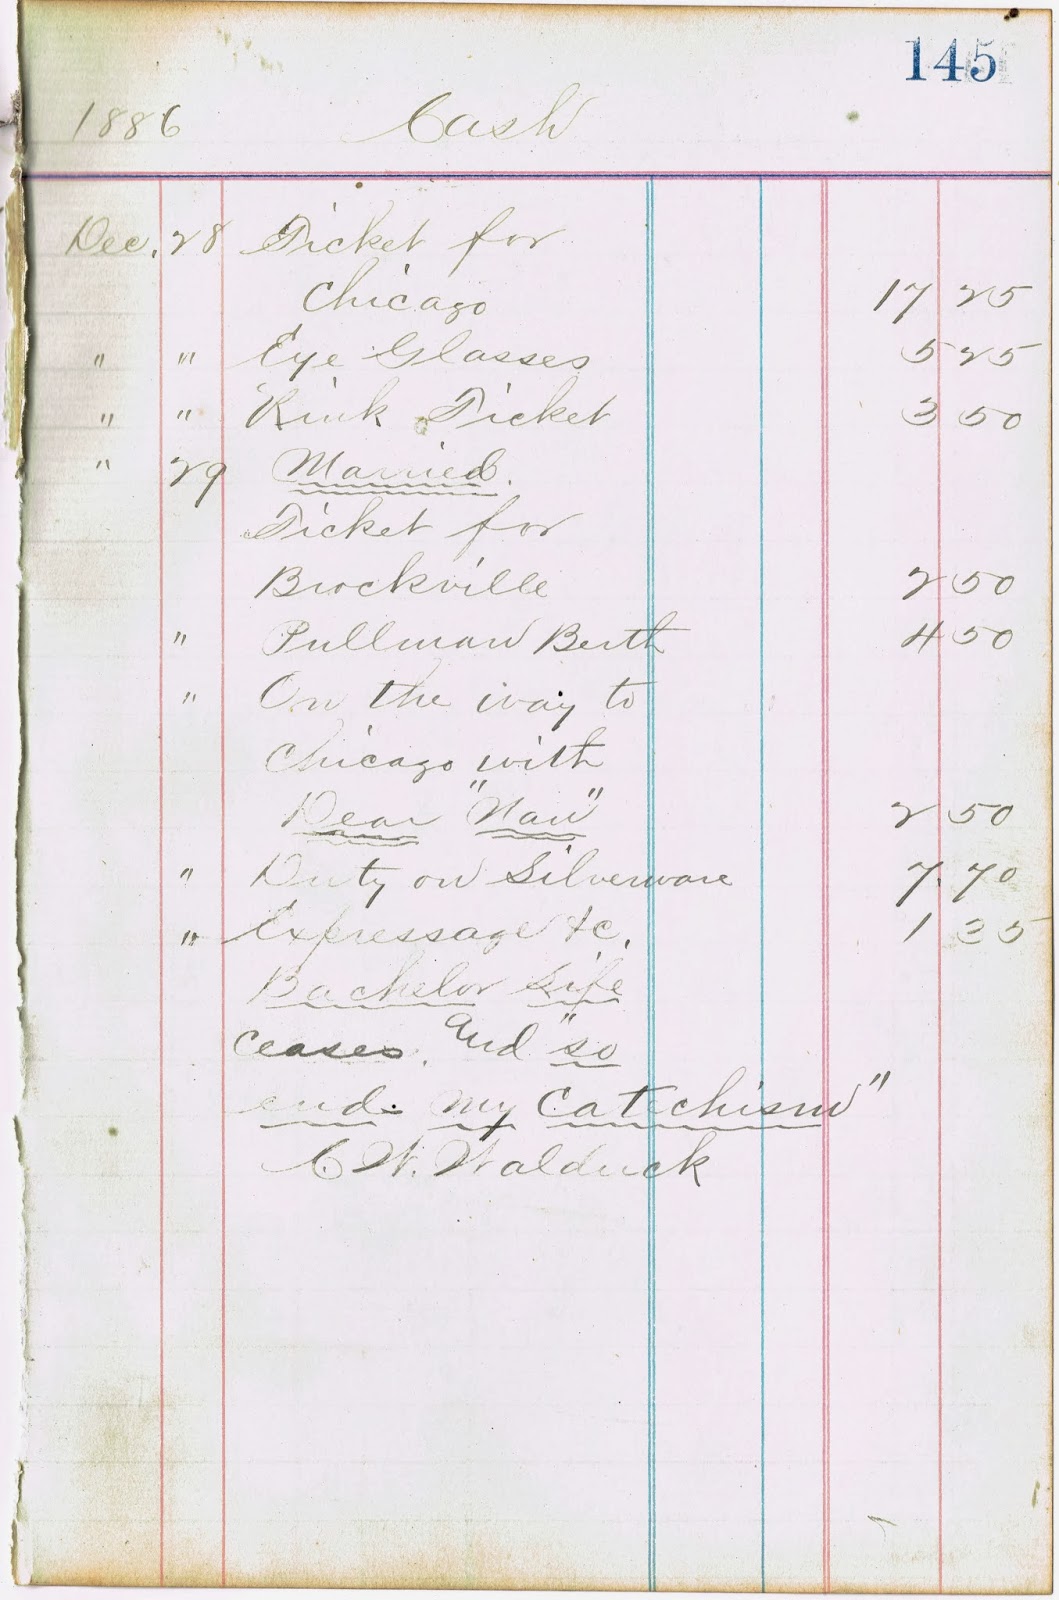 145
1886 Cash
Dec. 28 Ticket for
Chicago 17 25
" " Eye Glasses 5 25
" " Rink Ticket 3 50
" 29 Married.
Ticket for
Brockville 2 50
" Pullman Berth 4 50
" On the way to
Chicago with
Dear "Nan" 2 50
" Duty on Silverware 7. 70
" Expressage &c. 1 35
Bachelor Life
ceases. And "so
end my Catechism"
C W. Walduck